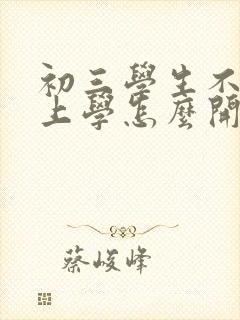 初三學生不
上學怎麼開
蔡峻峰